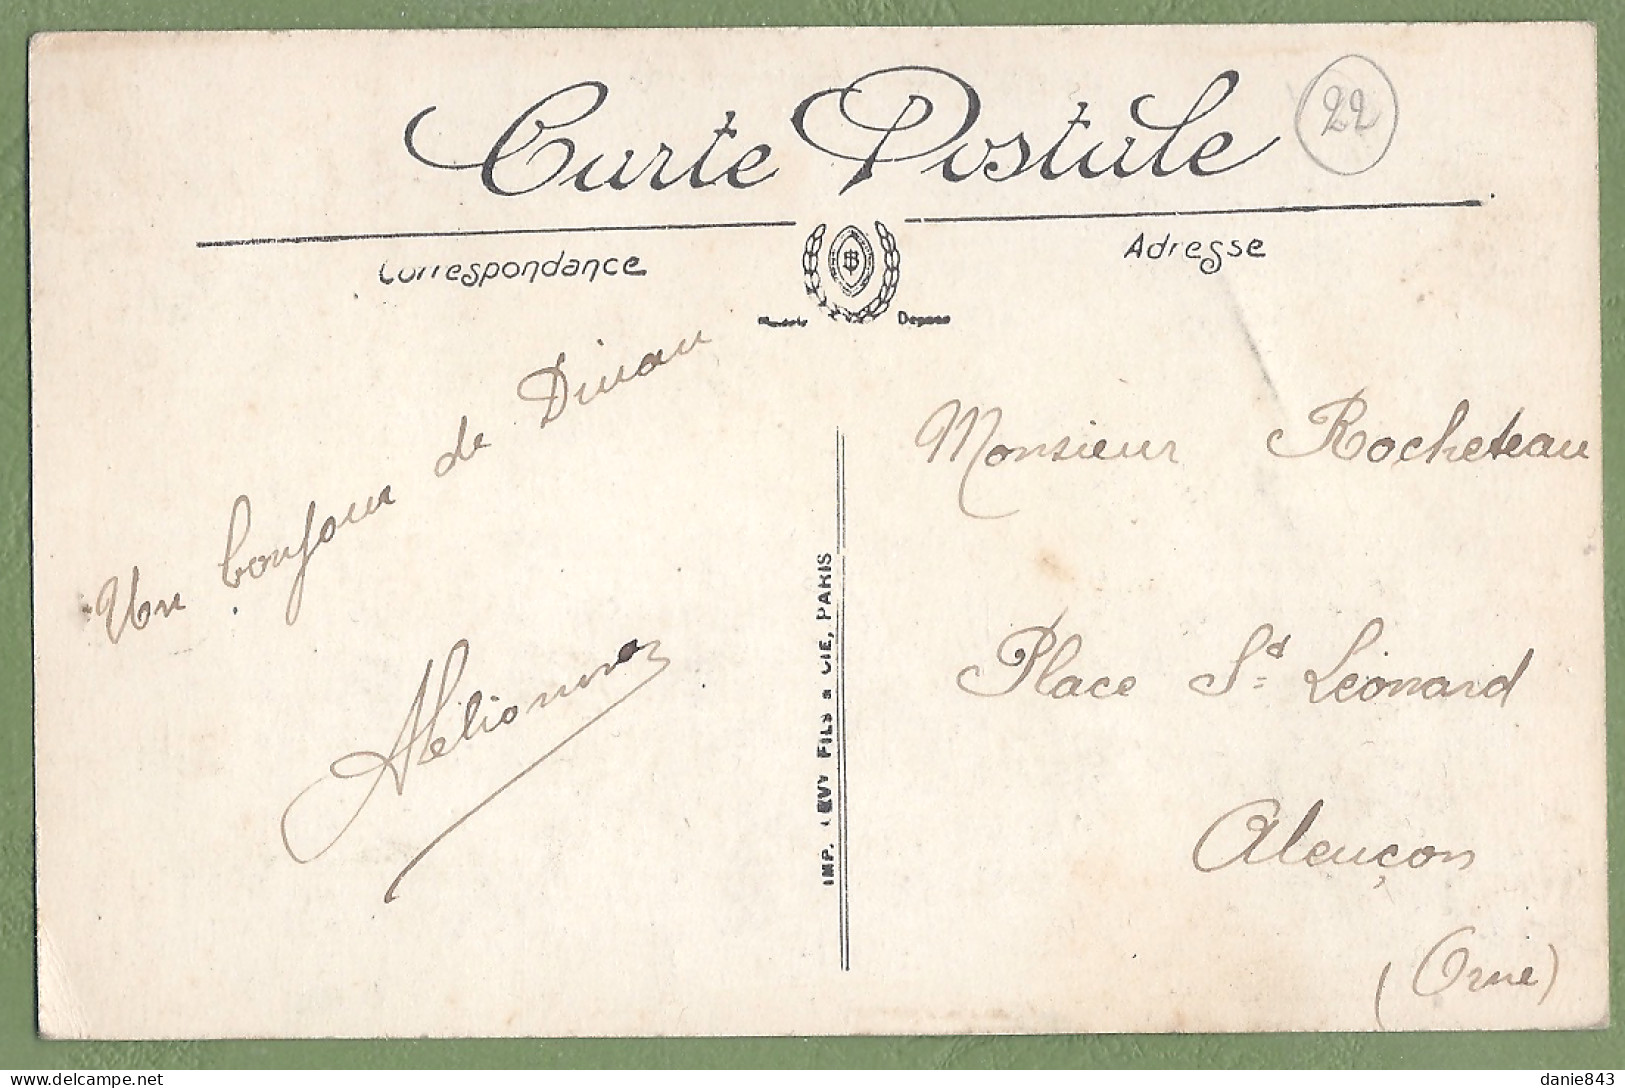 Carte Postale
22
Correspondance
Adresse
B
Modèle Déposé
Un bonjour de Dinan
Monsieur Rocheteau
Place St Léonard
Alençon
(Orne)
IMP. LEVY FILS & CIE, PARIS
delcampe.net
danie843